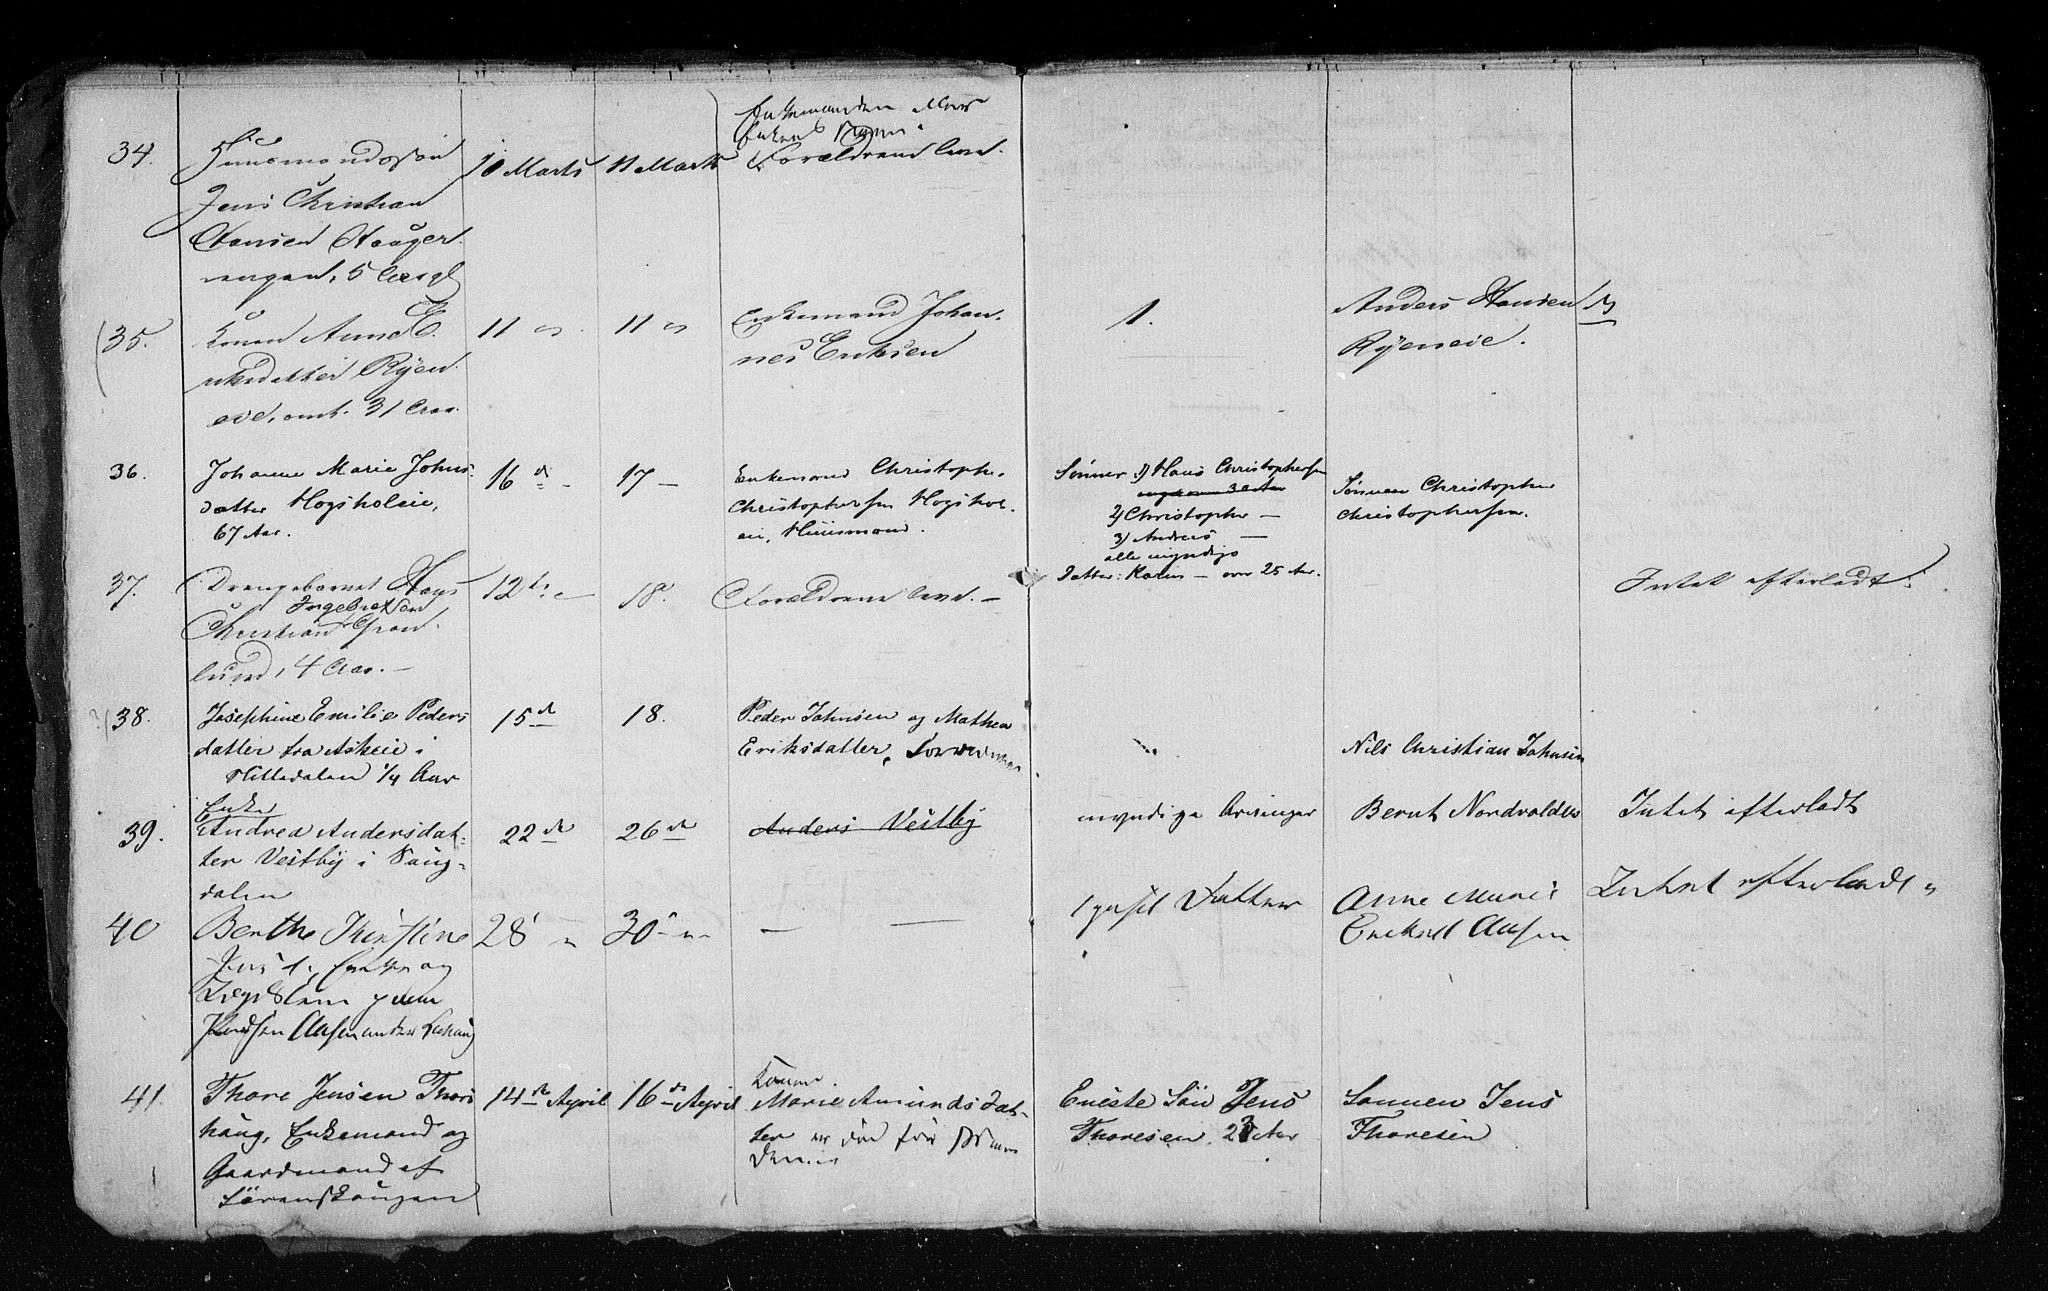 34.
Huusmandssøn
Jens Christian
Hansen Haager
engen, 5 Aar gl
10 Marts
11 Marts
Enkemanden eller
Enkens Navn.
Forældrene leve.
35.
Konen Anne E.
riksdatter Ryen
eie, omt. 31 Aar.
11
11
Enkemand Johan
nes Eriksen
1.
Anders Hansen
Ryeneie.
36.
Johanne Marie Johns
datter Hogsholeie,
67 Aar.
16 d
17 –
Enkemand Christopher
Christophersen Hogshol
eie, Huusmand.
Sønner 1) Hans Christophersen
2) Christopher —
3) Andreas —
alle myndige
Datter: Karen – over 25 Aar.
Sønnen Christopher
Christophersen.
37.
Drengebarnet Hans
Ingebretsen
Christian Gran
lund, 4 Aar. –
12te
18.
Forældrene leve. –
Intet efterladt.
38.
Josephine Emilie Peders
datter fra Askeie i
Hittedalen 1/4 Aar
15 de
18.
Peder Johnsen og Mathea
Eriksdatter,
"
Nils Christian Johnsen
39.
Enke
Andrea Andersdat-
ter Vestby i Saug-
dalen
22 de
26 de
Anders Vestby
myndige Arvinger
Bernt Nordvolden
Intet efterladt
40
Berthe Kirstine
Jens d. Enke og
Lægdslem
Knudsen Aasen under
28
30
— —
1 gift Datter
Anne Marie
Eriksd Aasen
Intet efterladt
41.
Thore Jensen Thors
haug, Enkemand og
Gaardmand af
Sörenskougen
14 de April
16 de April
Konen
Marie Amunds Dat-
ter er död før Man
den
Eneste Sön Jens
Thoresen, Aar
Sønnen Jens
Thoresen